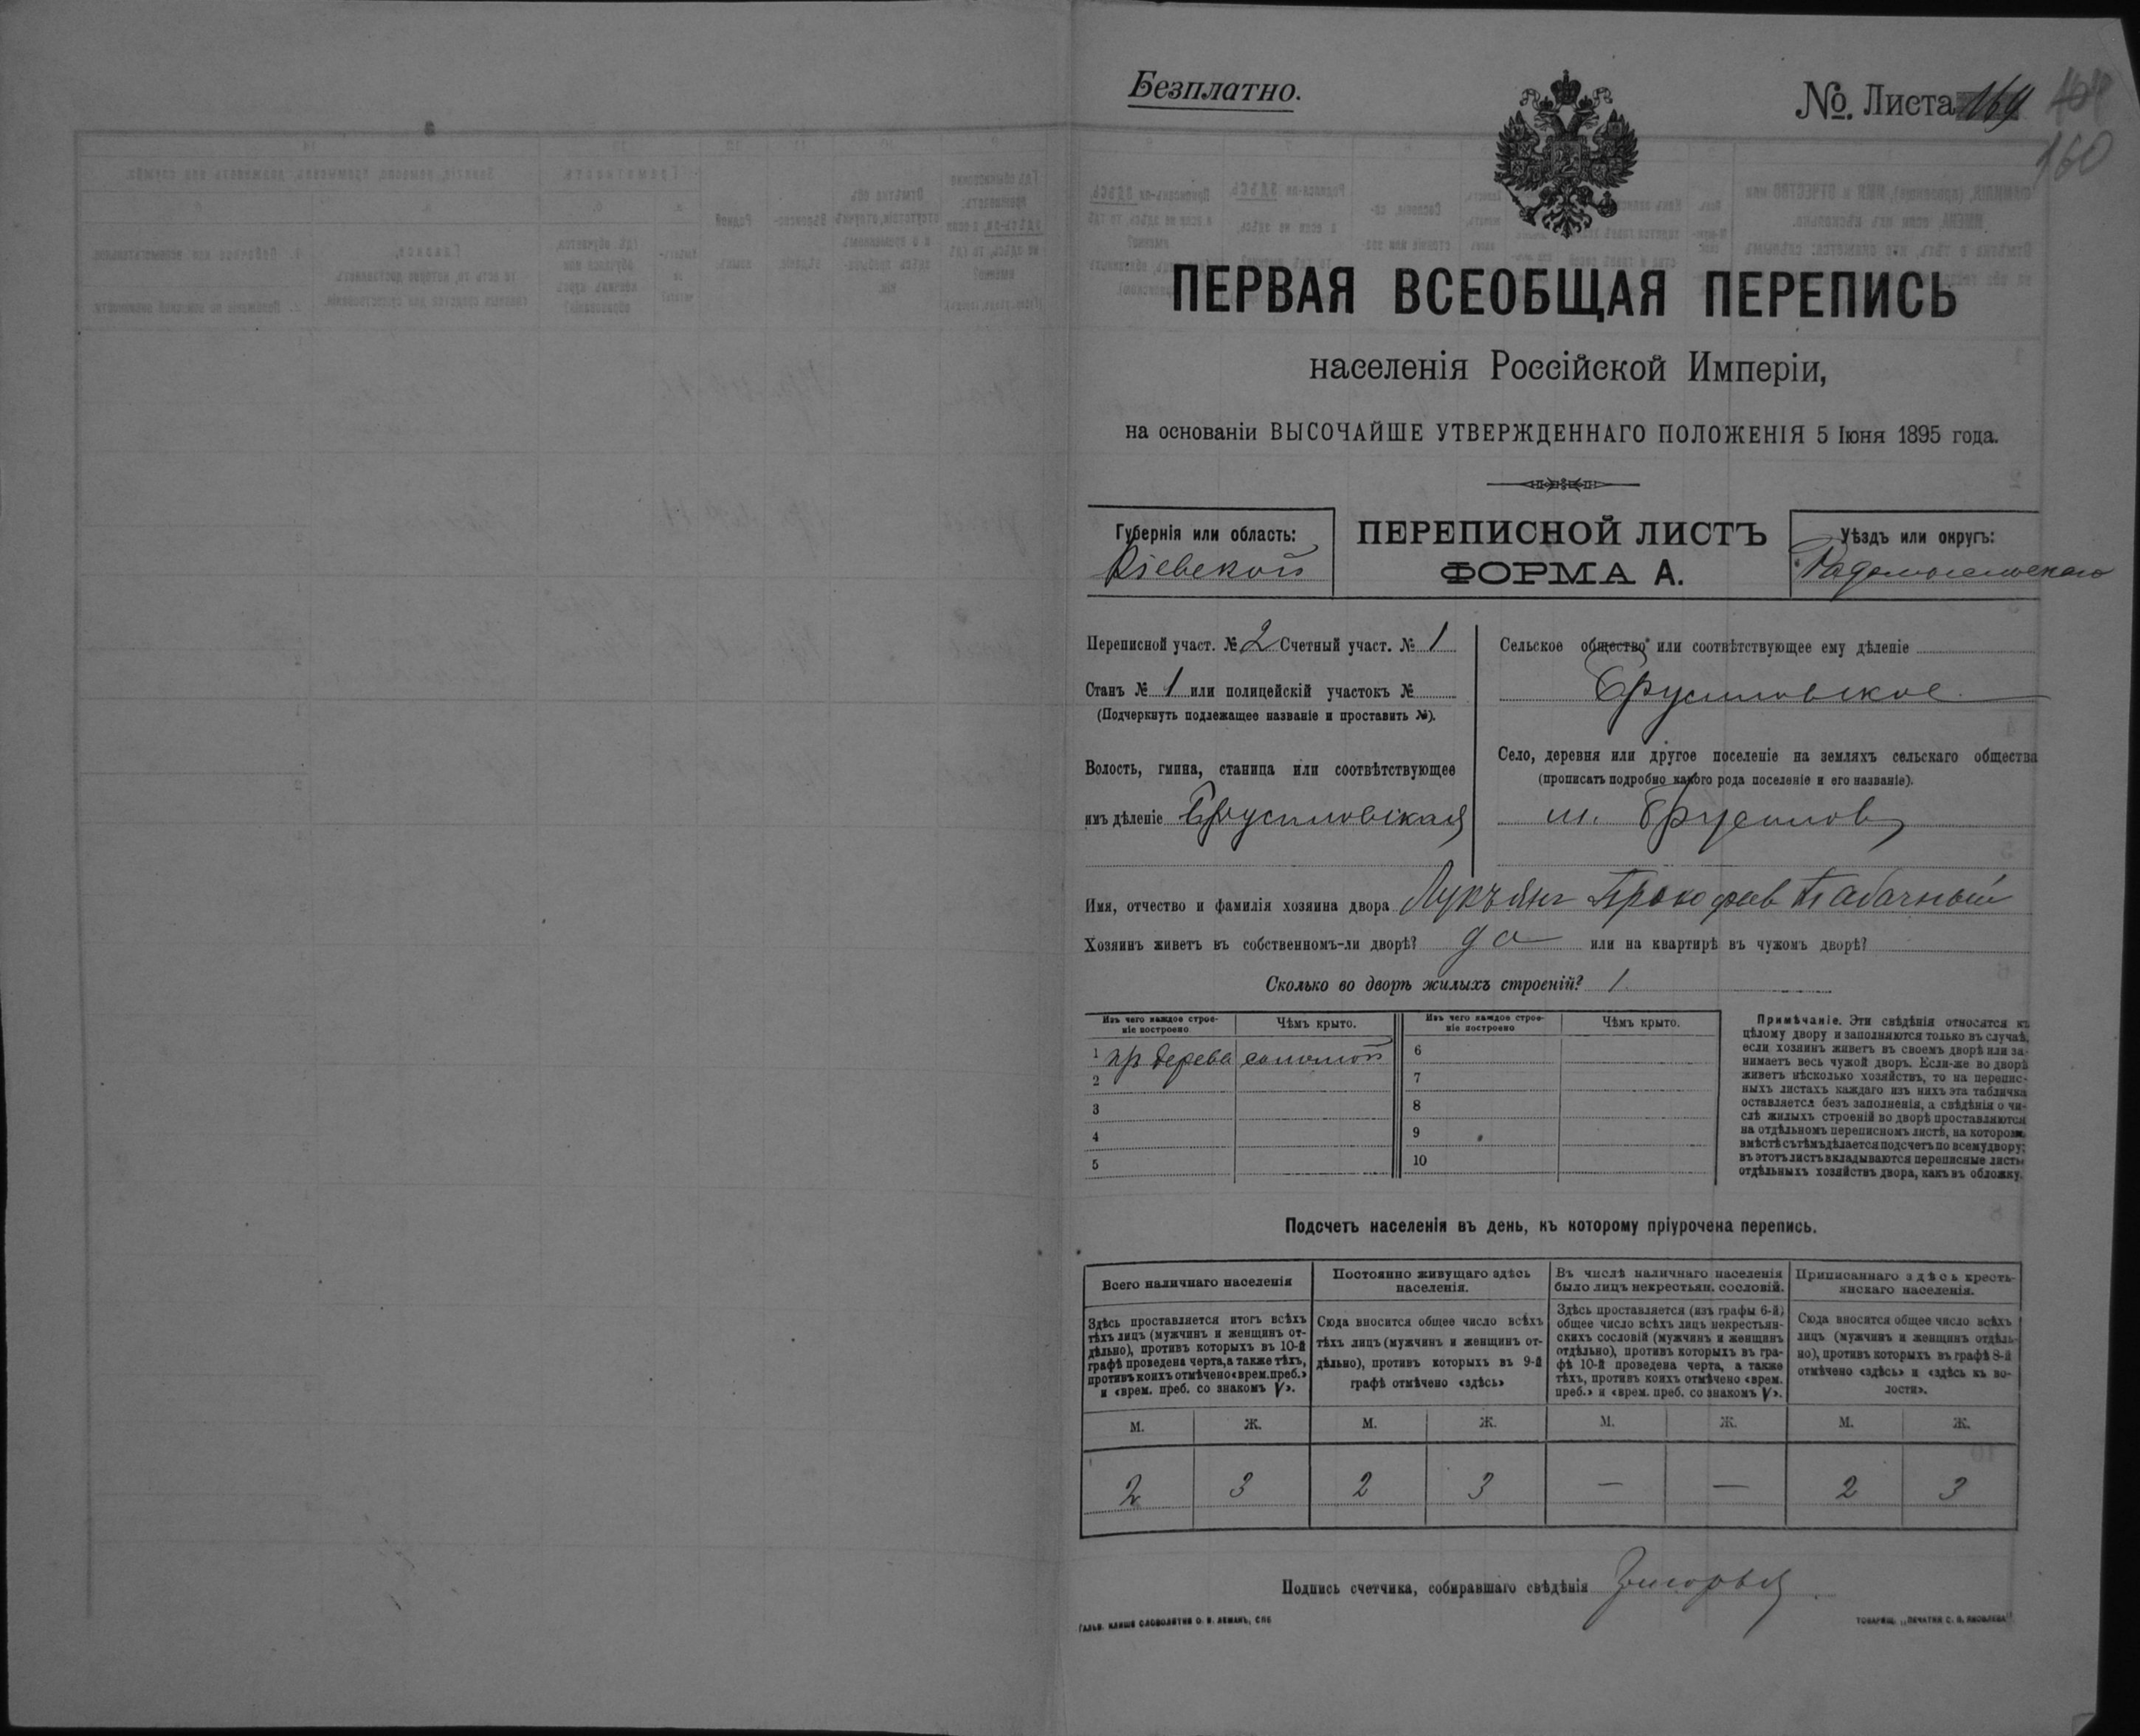 Безплатно.
№. Листа 169
160
ПЕРВАЯ ВСЕОБЩАЯ ПЕРЕПИСЬ
населенія Россійской Имперіи,
на основаніи ВЫСОЧАЙШЕ УТВЕРЖДЕННАГО ПОЛОЖЕНІЯ 5 Іюня 1895 года.
Губернія или область:
Кіевской
ПЕРЕПИСНОЙ ЛИСТЪ
ФОРМА А.
Уѣздъ или округъ:
Радомысльскаго
Переписной участ. № 2 Счетный участ. № 1
Станъ № 1 или полицейскій участокъ №
(Подчеркнуть подлежащее названіе и проставить №).
Волость, гмина, станица или соотвѣтствующее
имъ дѣленіе Брусиловская
Сельское общество или соотвѣтствующее ему дѣленіе
Брусиловское
Село, деревня или другое поселеніе на земляхъ сельскаго общества
(прописать подробно какого рода поселеніе и его названіе).
м. Брусилов
Имя, отчество и фамилія хозяина двора Лукъянъ Прокофьев Табачный
Хозяинъ живетъ въ собственномъ-ли дворѣ? да или на квартирѣ въ чужомъ дворѣ?
Сколько во дворѣ жилыхъ строеній? 1
Изъ чего каждое строе-
ніе построено
Чѣмъ крыто.
Изъ чего каждое строе-
ніе построено
Чѣмъ крыто.
1 из дерева соломой
2
3
4
5
6
7
8
9
10
Примѣчаніе. Эти свѣдѣнія относятся къ
цѣлому двору и заполняются только въ случаѣ,
если хозяинъ живетъ въ своемъ дворѣ или за-
нимаетъ весь чужой дворъ. Если-же во дворѣ
живетъ нѣсколько хозяйствъ, то на перепис-
ныхъ листахъ каждаго изъ нихъ эта табличка
оставляется безъ заполненія, а свѣдѣнія о чи-
слѣ жилыхъ строеній во дворѣ проставляются
на отдѣльномъ переписномъ листѣ, на которомъ
вмѣстѣ съ тѣмъ дѣлается подсчетъ по всему двору;
въ этотъ листъ вкладываются переписные листы
отдѣльныхъ хозяйствъ двора, какъ въ обложку.
Подсчетъ населенія въ день, къ которому пріурочена перепись.
Всего наличнаго населенія
Здѣсь проставляется итогъ всѣхъ
тѣхъ лицъ (мужчинъ и женщинъ от-
дѣльно), противъ которыхъ въ 10-й
графѣ проведена черта, а также тѣхъ,
противъ коихъ отмѣчено «врем. преб.»
и «врем. преб. со знакомъ V».
Постоянно живущаго здѣсь
населенія.
Сюда вносится общее число всѣхъ
тѣхъ лицъ (мужчинъ и женщинъ от-
дѣльно), противъ которыхъ въ 9-й
графѣ отмѣчено «здѣсь»
Въ числѣ наличнаго населенія
было лицъ некрестьян. сословій.
Здѣсь проставляется (изъ графы 6-й)
общее число всѣхъ лицъ некрестьян-
скихъ сословій (мужчинъ и женщинъ
отдѣльно), противъ которыхъ въ гра-
фѣ 10-й проведена черта, а также
тѣхъ, противъ коихъ отмѣчено «врем.
преб.» и «врем. преб. со знакомъ V».
Приписаннаго здѣсь кресть-
янскаго населенія.
Сюда вносится общее число всѣхъ
лицъ (мужчинъ и женщинъ отдѣль-
но), противъ которыхъ въ графѣ 8-й
отмѣчено «здѣсь» и «здѣсь къ во-
лости».
М. Ж. М. Ж. М. Ж. М. Ж.
2 3 2 3 — — 2 3
Подпись счетчика, собиравшаго свѣдѣнія
ГАЛЬВ. КЛИШЕ СЛОВОЛИТНИ О. И. ЛЕМАНЪ, СПБ
ТОВАРИЩ. „ПЕЧАТНИ С. П. ЯКОВЛЕВА"